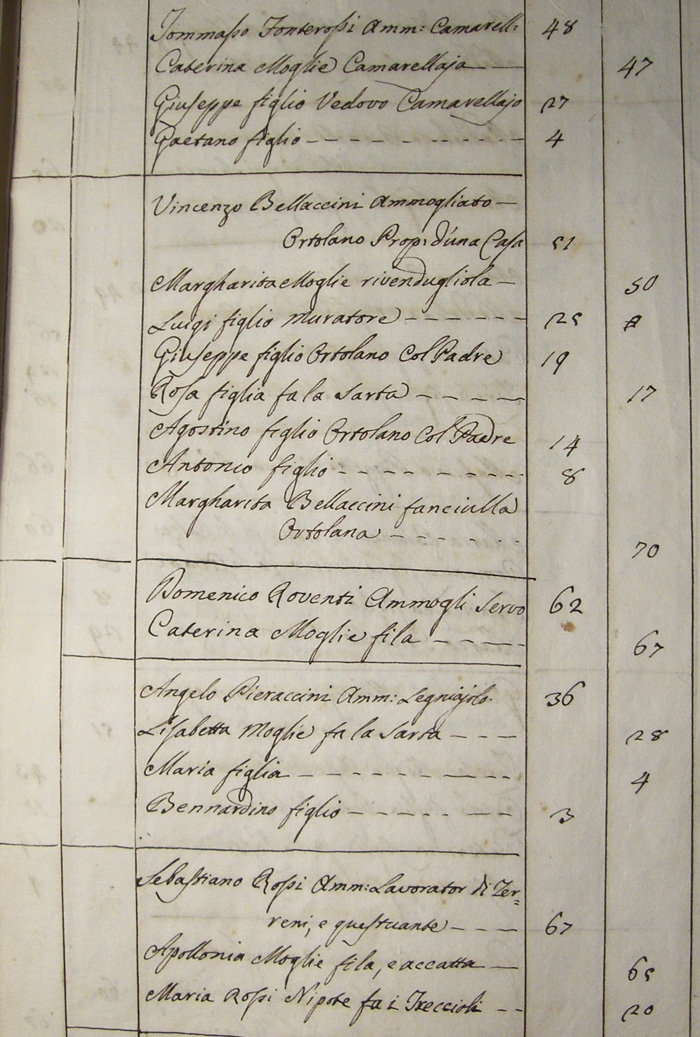 Tommaso Fonterossi Amm: Camarell: 48
Caterina Moglie Camarellaja 47
Giuseppe figlio Vedovo Camarellajo 27
Gaetano figlio 4
Vincenzo Bellaccini Ammogliato
Ortolano Prop: d'una Casa 51
Margharita Moglie rivendugliola 50
Luigi figlio muratore 25
Giuseppe figlio Ortolano Col Padre 19
Rosa figlia fa la Sarta 17
Agostino figlio Ortolano Col Padre 14
Antonio figlio 8
Margharita Bellaccini fanciulla
Ortolana 70
Domenico Roventi Ammogli: Servo 62
Caterina Moglie fila 67
Angelo Pieraccini Amm: Legniajolo 36
Lisabetta Moglie fa la Sarta 28
Maria figlia 4
Bennardino figlio 3
Sebastiano Rossi Amm: Lavorator di Ter=
reni, e questuante 67
Apollonia Moglie fila, e accatta 65
Maria Rossi Nipote fa i Treccioli 20